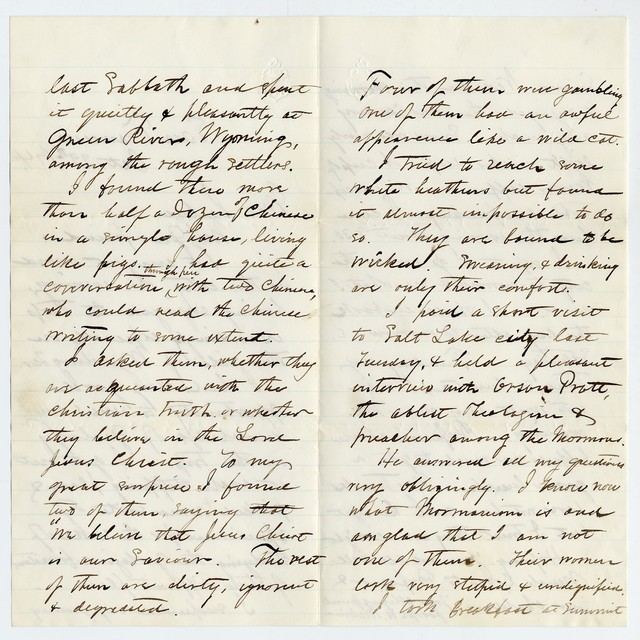 last Sabbath and spent
it quietly & pleasantly at
Green River, Wyoming,
among the rough settlers.
I found there more
than half a dozen of Chinese
in a single house, living
like pigs. I had quite a
conversation, through pen with two Chinese,
who could read the Chinese
writing to some extent.
I asked them, whether they
are acquainted with the
Christian truth or whether
they believe in the Lord
Jesus Christ. To my
great surprise I found
two of them, saying that
"We believe that Jesus Christ
is our Saviour. The rest
of them are dirty, ignorent
& degreded.
Four of them were gambling
one of them had an awful
appearence like a wild cat.
I tried to reach some
white heathers but found
it almost impossible to do
so. They are bound to be
wicked. Swearing, & drinking
are only their comfort.
I paid a short visit
to Salt Lake city last
Tuesday, & held a pleasant
interview with Orson Pratt,
the ablest Theologian &
preacher among the Mormons.
He answered all my questions
very obligingly. I know now
what Mormanism is and
am glad that I am not
one of them. Their women
look very stupid & undignified.
I took breakfast at Summit